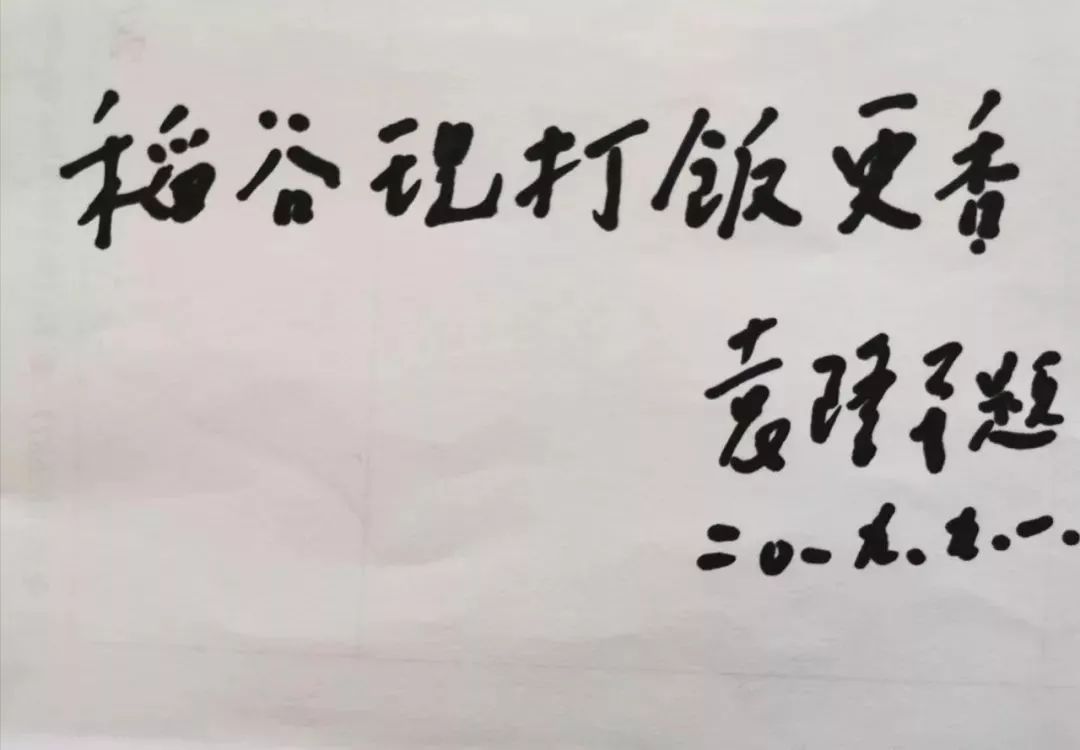 稻谷现打饭更香
袁隆平题
二〇一九.九.一.